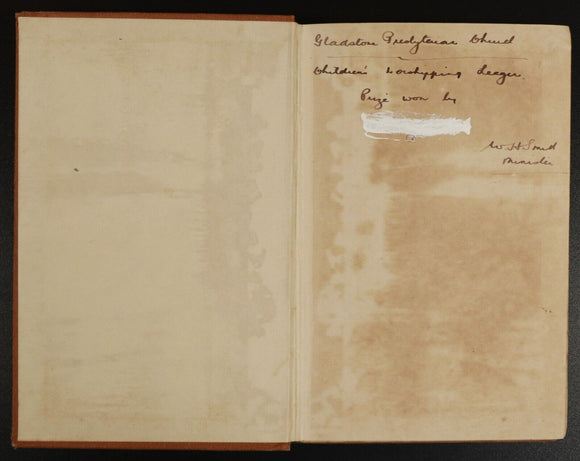 Gladstone Presbyterian Church
Children's Worshipping League.
Prize won by
W. H. Smith
Minister